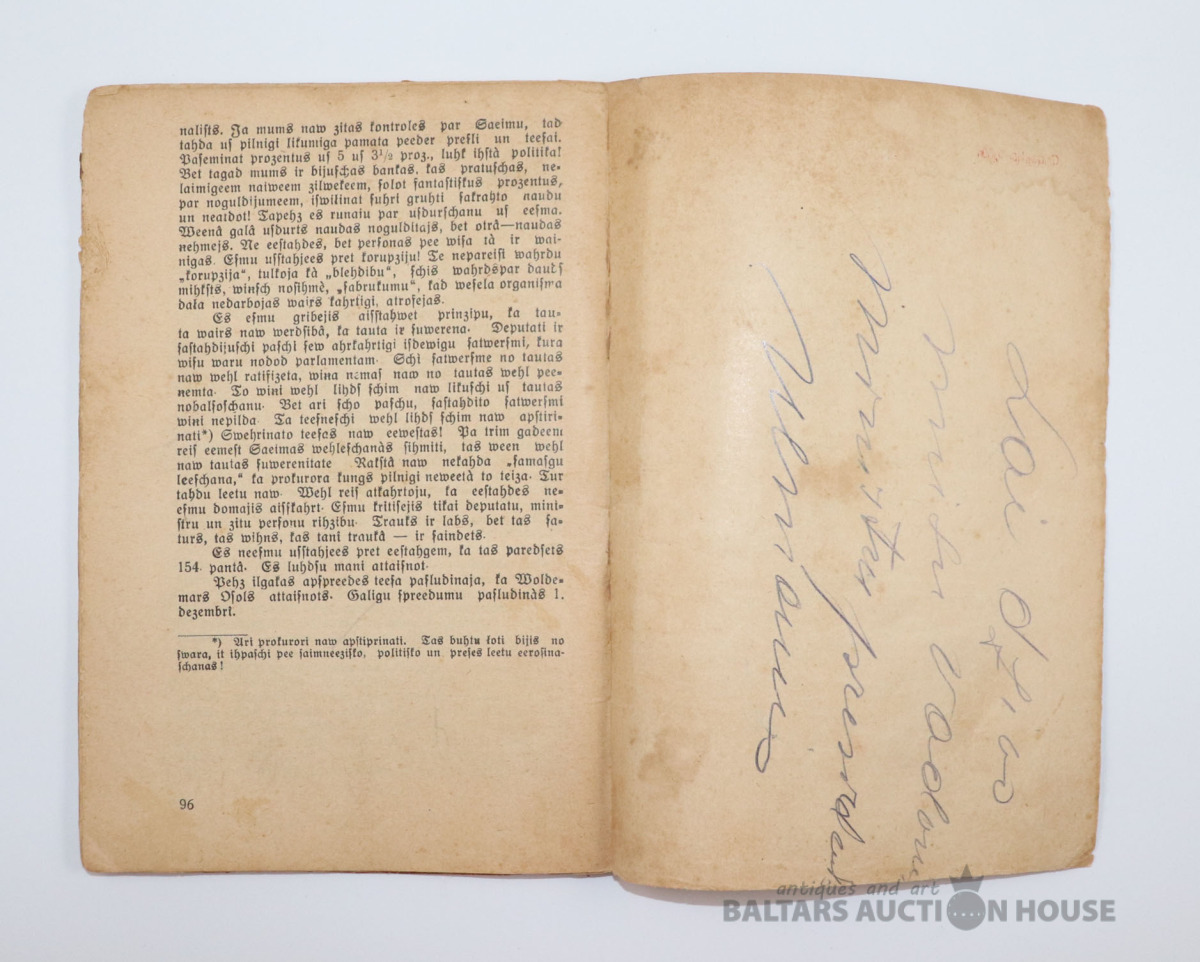 naliſts. Ja mums naw zitas kontroles par Saeimu, tad
tahda uſ pilnigi likumiga pamata peeder preſei un teeſai.
Paſeminat prozentus uſ 5 uſ 3½ proz., luhk ihſtâ politika!
Bet tagad mums ir bijuſchas bankas, kas pratuſchas, ne-
laimigeem naiweem zilwekeem, ſolot fantaſtiſkus prozentus,
par noguldijumeem, iſwilinat ſuhri gruhti ſakrahto naudu
un neatdot! Tapehz es runaju par uſdurſchanu uſ eeſma.
Weenâ galâ uſdurts naudas nogulditajs, bet otrâ—naudas
nehmejs. Ne eeſtahdes, bet perſonas pee wiſa tà ir wai-
nigas. Eſmu uſſtahjees pret korupziju! Te nepareiſi wahrdu
„korupzija“, tulkoja kà „blehdibu“, ſchis wahrds par dauds
mihkſts, winſch noſihmè, „ſabrukumu“, kad weſela organiſma
daļa nedarbojas wairs kahrtigi, atrofejas.
Es eſmu gribejis aiſſtahwet prinzipu, ka tau-
ta wairs naw werdſibâ, ka tauta ir ſuwerena. Deputati ir
ſaſtahdijuſchi paſchi ſew ahrkahrtigi iſdewigu ſatwerſmi, kura
wiſu waru nodod parlamentam. Schi ſatwerſme no tautas
naw wehl ratifizeta, wina nemaſ naw no tautas wehl pee-
nemta. To wini wehl lihdſ ſchim naw likuſchi uſ tautas
nobalſoſchanu. Bet ari ſcho paſchu, ſaſtahdito ſatwerſmi
wini nepilda. Ta teeſneſchi wehl lihdſ ſchim naw apſtiri-
nati*) Swehrinato teeſas naw eeweſtas! Pa trim gadeem
reiſ eemeſt Saeimas wehleſchanàs ſihmiti, tas ween wehl
naw tautas ſuwerenitate Rakſtâ naw nekahda „ſamaſgu
leeſchana,“ ka prokurora kungs pilnigi neweetâ to teiza. Tur
tahdu leetu naw. Wehl reiſ atkahrtoju, ka eeſtahdes ne-
eſmu domajis aiſſkahrt. Eſmu kritiſejis tikai deputatu, mini-
ſtru un zitu perſonu rihzibu. Trauks ir labs, bet tas ſa-
turs, tas wihns, kas tani traukâ — ir ſaindets.
Es neeſmu uſſtahjees pret eeſtahgem, ka tas paredſets
154. pantâ. Es luhdſu mani attaiſnot.
Pehz ilgakas apſpreedes teeſa paſludinaja, ka Wolde-
mars Oſols attaiſnots. Galigu ſpreedumu paſludinàs 1.
dezembrî.
*) Ari prokurori naw apſtiprinati. Tas buhtu ļoti bijis no
ſwara, it ihpaſchi pee ſaimneeziſko, politiſko un preſes leetu eeroſina-
ſchanas!
96
Lai dzīvo
mūsu Vadonis
Ministru prezidents
Ulmanis
antiques and art
BALTARS AUCTION HOUSE